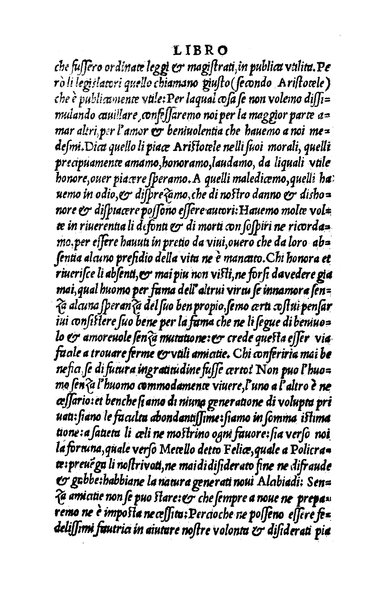 LIBRO
che fussero ordinate leggi & magistrati, in publica vtilita. Pe
rò li legislatori quello chiamano giusto (secondo Aristotele)
che è publicamente vtile: Per laqual cosa se non volemo dissi
mulando cauillare, confessaremo noi per la maggior parte a
mar altri, per l'amor & beniuolentia che hauemo a noi me
desmi. Dica quello li piace Aristotele nelli suoi morali, quelli
precipuamente amamo, honoramo, laudamo, da liquali vtile
honore, ouer piacere speramo. A quelli maledicemo, quelli ha
uemo in odio, & disprezamo, che di nostro danno & disho-
nore & dispiacere possono essere autori: Hauemo molte vol
te in riuerentia li defonti & di morti con sospiri ne ricorda
mo. per essere hauuti in pretio da viui, ouero che da loro ab
sentia alcuno presidio della vita ne è mancato. Chi honora et
riuerisce li absenti, & mai piu non visti, ne forsi da vedere gia
mai, qual huomo per fama dell'altrui virtu se innamora sen
za alcuna speranza del suo ben proprio, semo certi costui pensar
iui consistere suo bene per la fama che ne li segue di beniuo
lo & amoreuole senza mutatione: & crede questa esser via
facile a trouare ferme & vtili amicitie. Chi conferiria mai be
nefici, se di futura ingratitudine fusse certo? Non puo l'huo
mo senza l'huomo commodamente viuere, l'uno a l'altro è ne
cessario: et benche siamo di niuna generatione di volupta pri
uati: siano le faculta abondantissime: siamo in somma istima
tione: a satieta li cieli ne mostrino ogni fauore: sia verso noi
la fortuna, quale verso Metello detto Felice, quale a Policra
te: preuenga li nostri voti, ne mai di disiderato fine ne difraude
& gabbe: habbiane la natura generati noui Alcibiadi: Sen-
za amicitie non se puo stare: & che sempre a noue ne prepa-
remo ne è imposta necessita: Percioche ne possono essere fe
delissimi fautrici in aiutare nostre volonta & disiderati pia